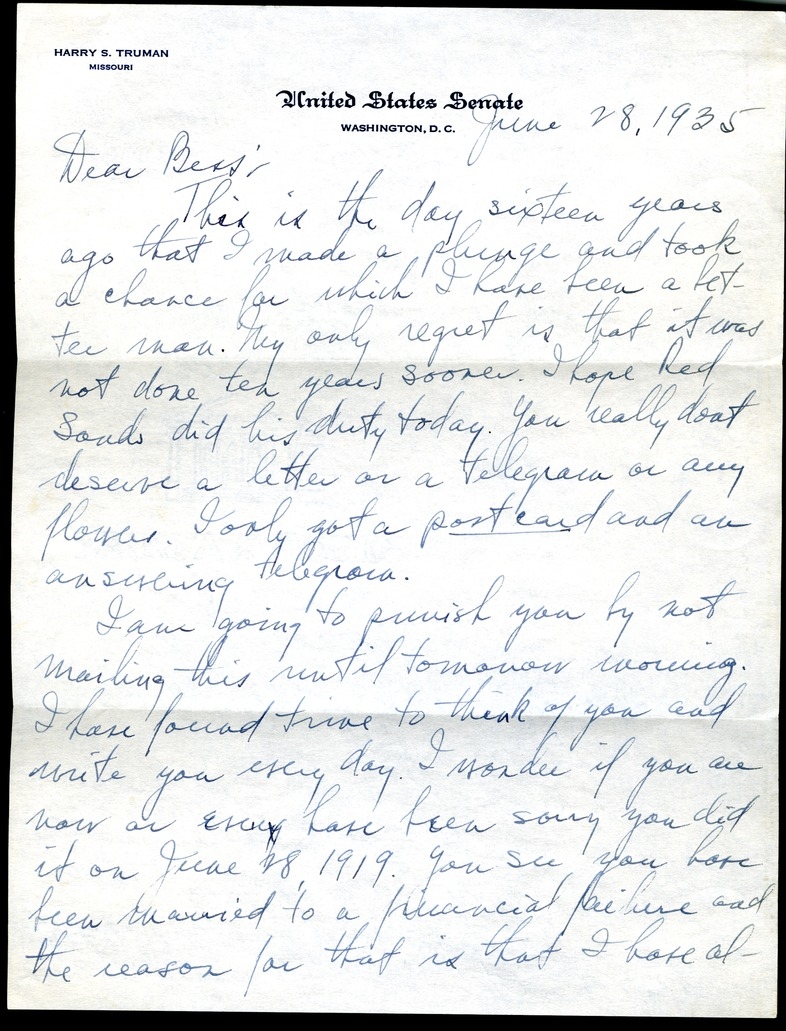 HARRY S. TRUMAN
MISSOURI
United States Senate
WASHINGTON, D.C.
June 28, 1935
Dear Bess:
This is the day sixteen years
ago that I made a plunge and took
a chance for which I have been a bet-
ter man. My only regret is that it was
not done ten years sooner. I hope Red
Sands did his duty today. You really dont
deserve a letter or a telegram or any
flowers. I only got a postcard and an
answering telegram.
I am going to punish you by not
mailing this until tomorrow morning.
I have found time to think of you and
write you every day. I wonder if you are
now or ever have been sorry you did
it on June 28, 1919. You see you have
been married to a financial failure and
the reason for that is that I have al-